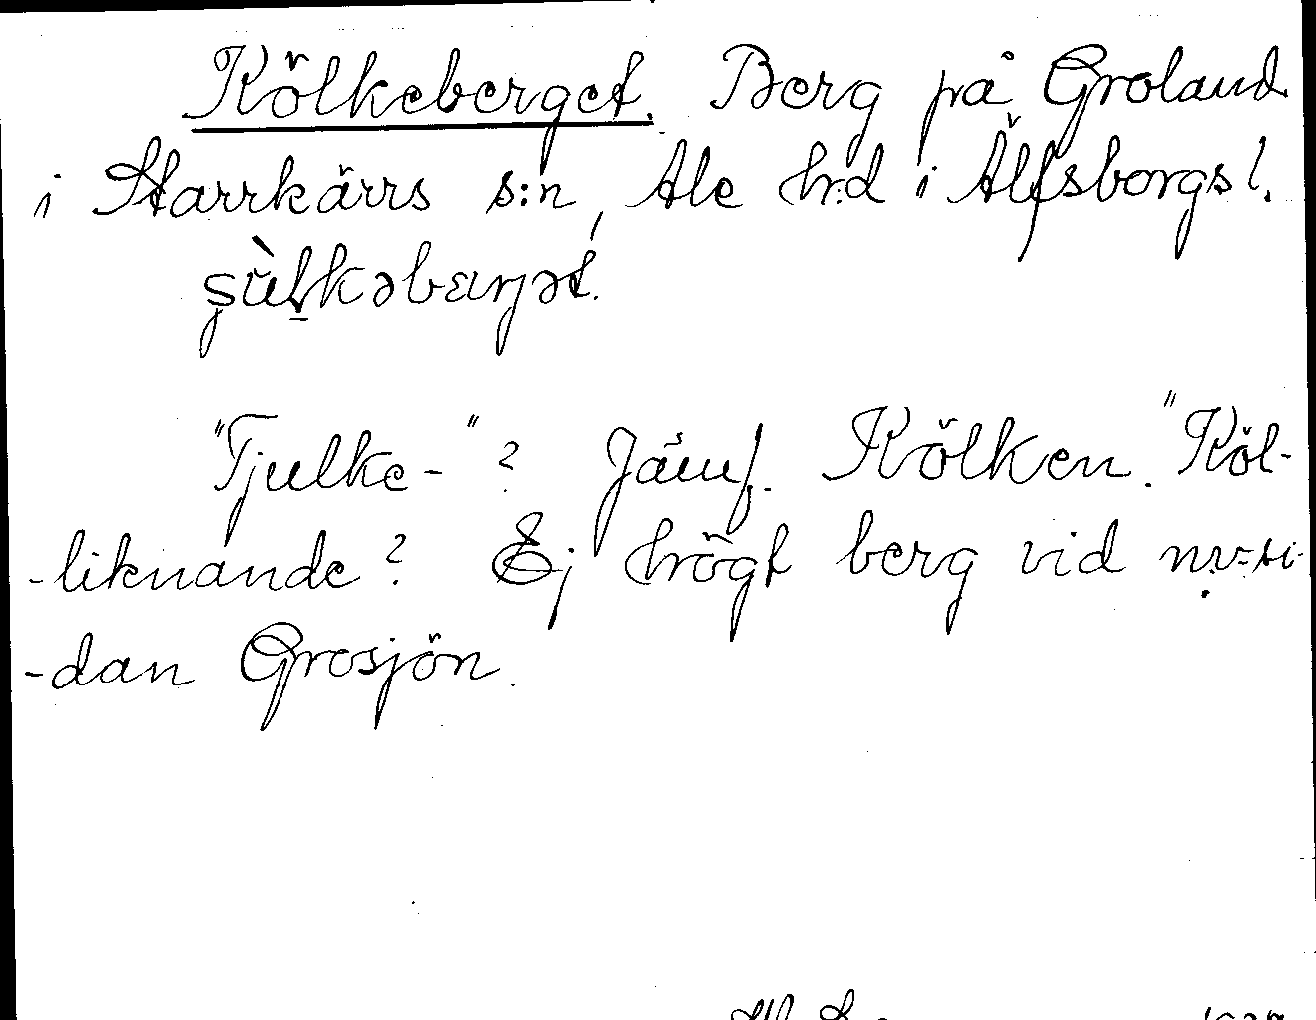 Kölkeberget. Berg på Groland
i Starrkärrs s:n, Ale h:d i Älfsborgs l.
"Tjulke-"? Jämf. Kölken. "Köl-
-liknande? Ej högt berg vid nv-si-
-dan Grosjön.